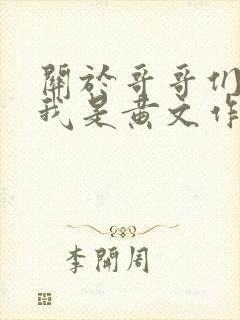 關於哥哥们
我是黄文作
李開周